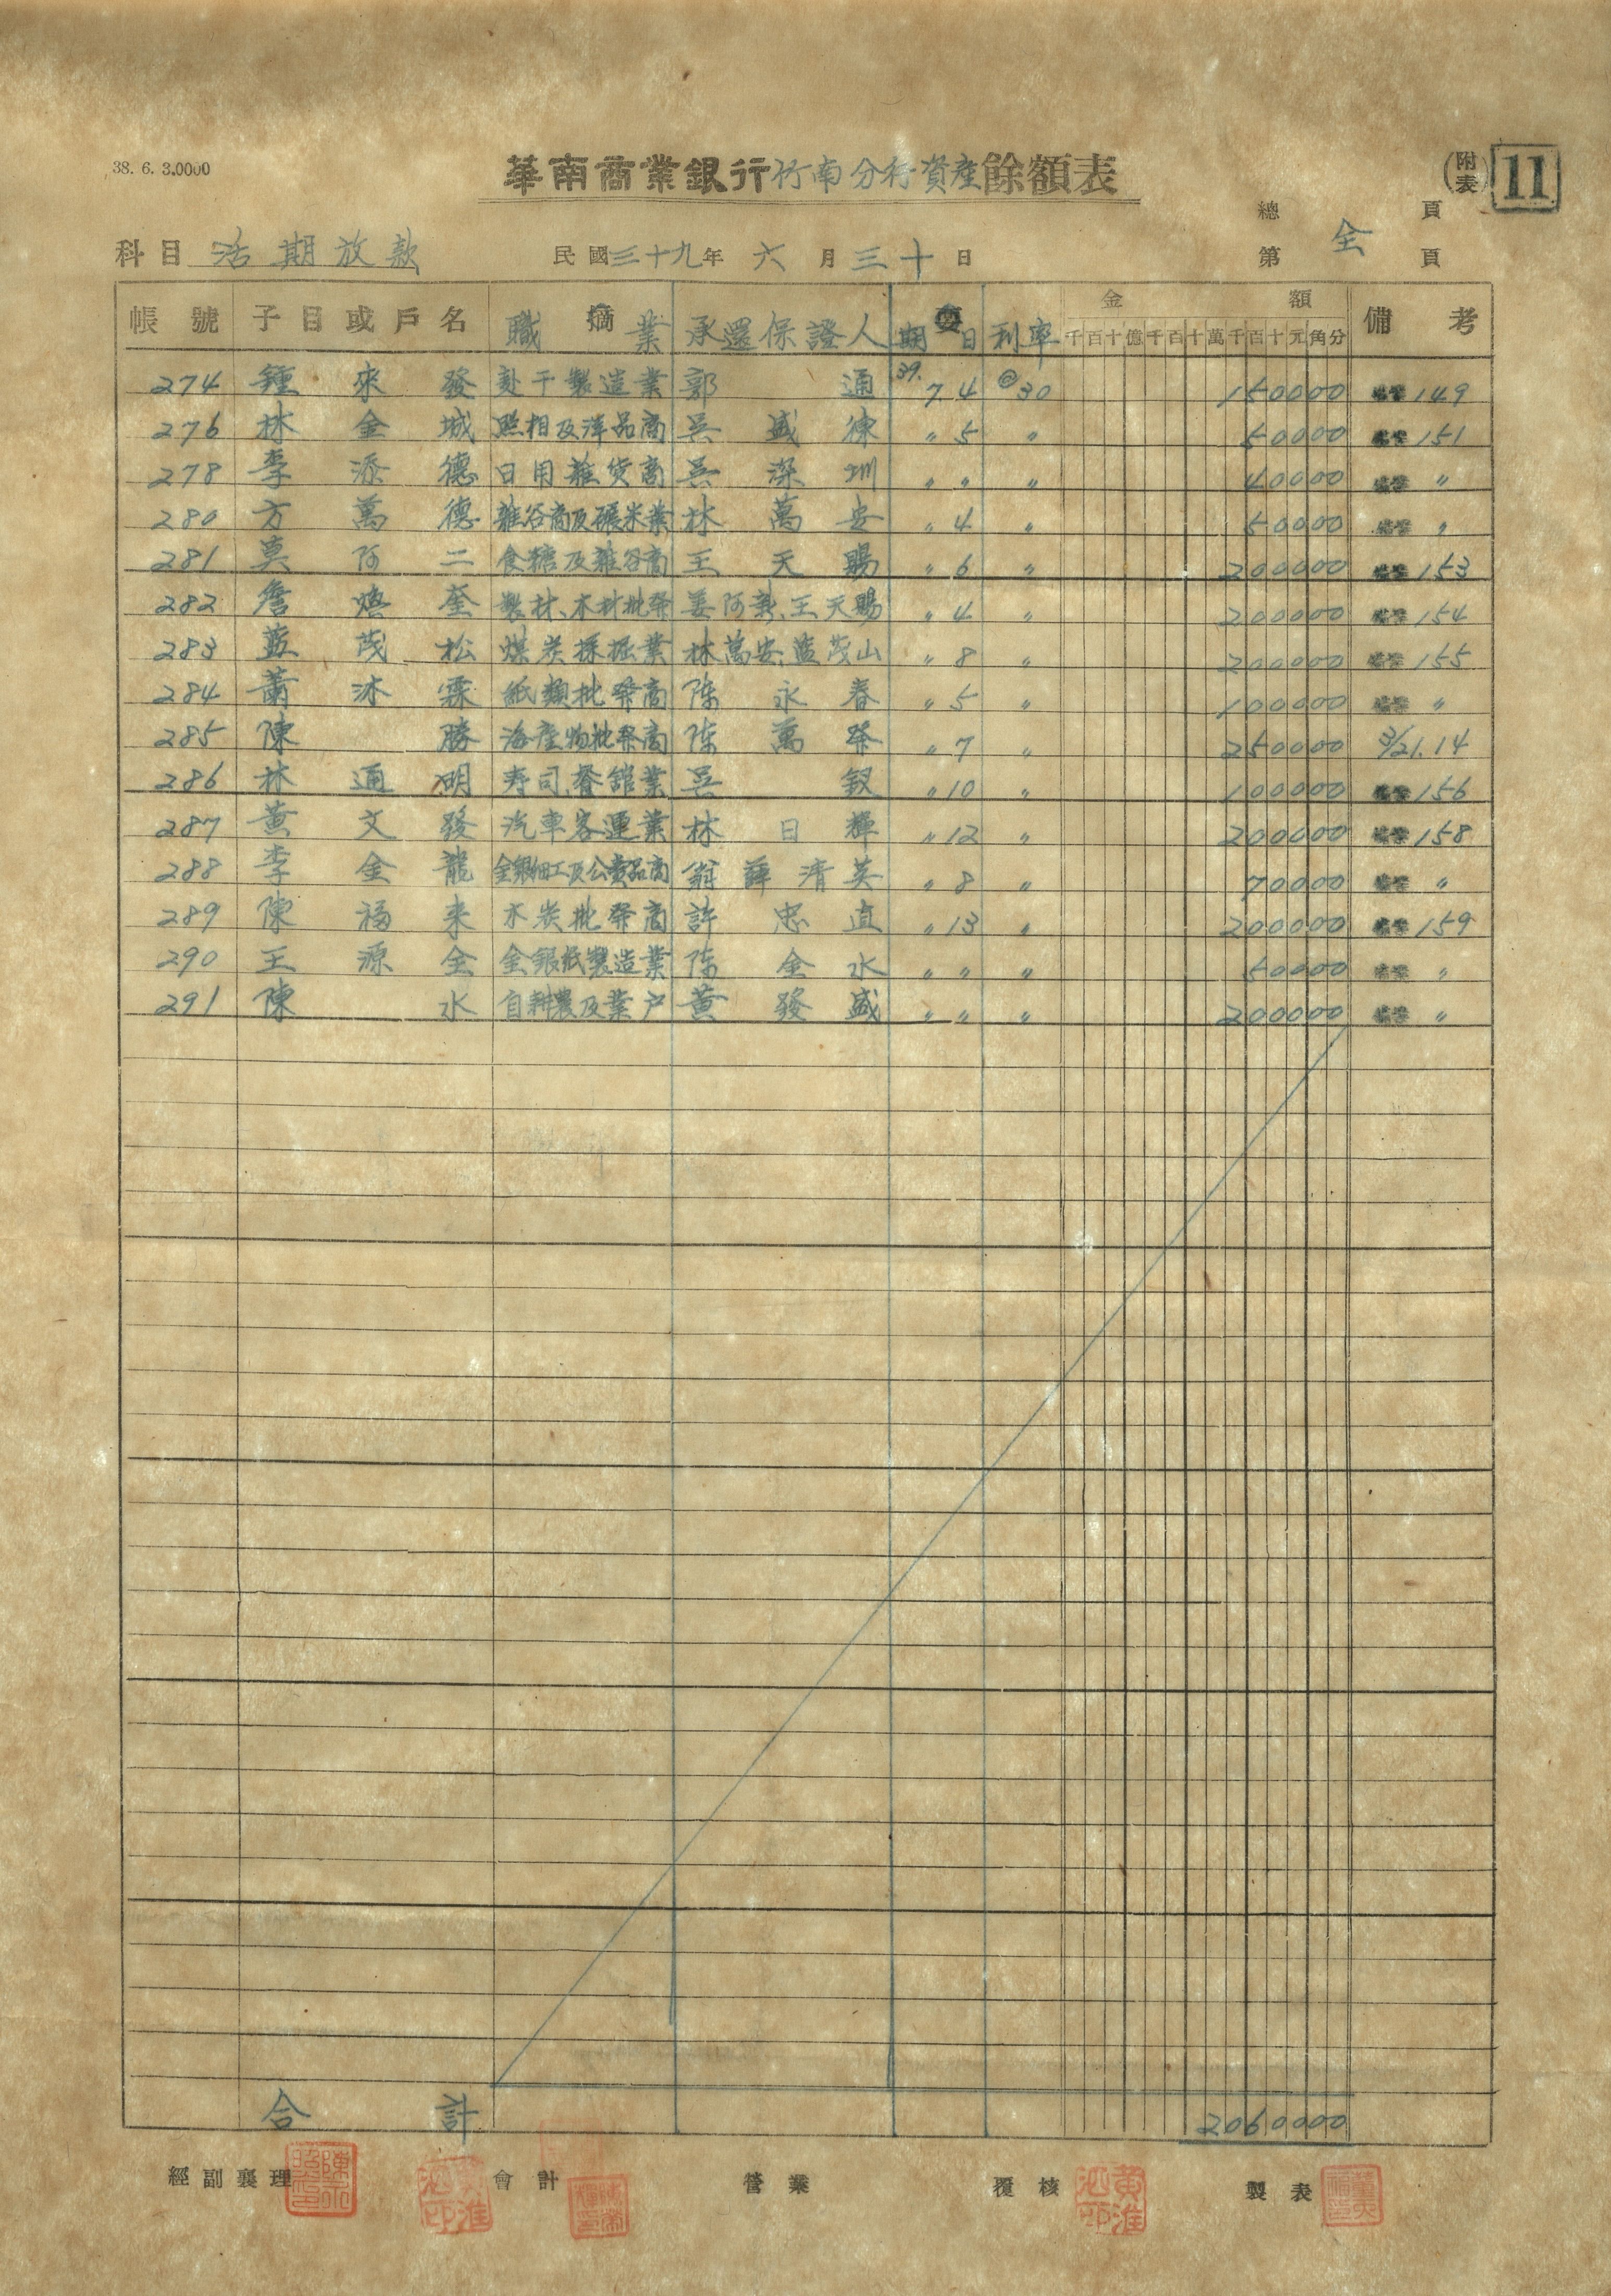 38. 6. 3.0000
華南商業銀行竹南分行資產餘額表
(附表) 11
總 頁
科目 活期放款 民國三十九年 六 月 三十 日 第 全 頁
帳號 子目或戶名 摘 要 金 額 備考
職業 承還保證人 期日 利率 千百十億千百十萬千百十元角分
274 鍾來發 製造業 郭通 39. 7 4 @30 150000 149
276 林金城 照相及洋品商 吳盛 〃 5 〃 50000 151
278 李添德 日用雜貨商 吳深圳 〃 〃 〃 40000 〃
280 方萬德 雜谷商及碾米業 林萬安 〃 4 〃 50000 〃
281 莫阿二 食糖及雜谷商 王天賜 〃 6 〃 200000 153
282 詹奎 製材、木材批發 姜阿新、王天賜 〃 4 〃 200000 154
283 藍茂松 煤炭採掘業 林萬安、藍茂山 〃 8 〃 200000 155
284 蕭沐霖 紙類批發商 陈永春 〃 5 〃 100000 〃
285 陳勝 海產物批發商 陈萬發 〃 7 〃 250000 3/21.14
286 林通明 寿司、餐館業 吳釵 〃 10 〃 100000 156
287 黃文發 汽車客運業 林日輝 〃 12 〃 200000 158
288 李金龍 金銀細工及公賣品商 翁薛清英 〃 8 〃 70000 〃
289 陳福来 木炭批發商 許忠直 〃 13 〃 200000 159
290 王源全 金銀紙製造業 陈金水 〃 〃 〃 50000 〃
291 陳水 自耕農及業戶 黃發盛 〃 〃 〃 200000 〃
合計 2060000
經副襄理 會計 營業 覆核 製表